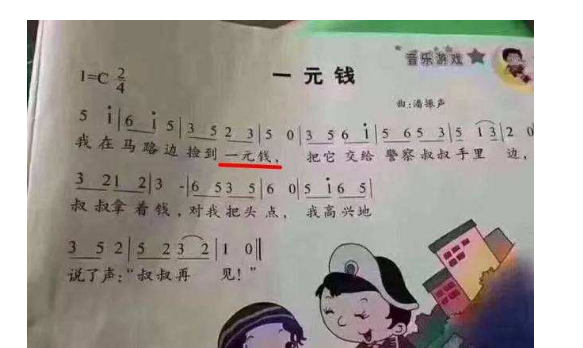 音乐游戏
一元钱
1=C 2/4
曲:潘振声
5 i|6 i 5|3 5 2 3|5 0|3 5 6 i|5 6 5 3|5 1 3|2 0
我在马路边捡到一元钱, 把它交给警察叔叔手里 边,
3 21 2|3 -|6 5 3 5|6 0|5 i 6 5|
叔叔拿着钱,对我把头点, 我高兴地
3 5 2|5 2 3 2|1 0‖
说了声:“叔叔再 见!”